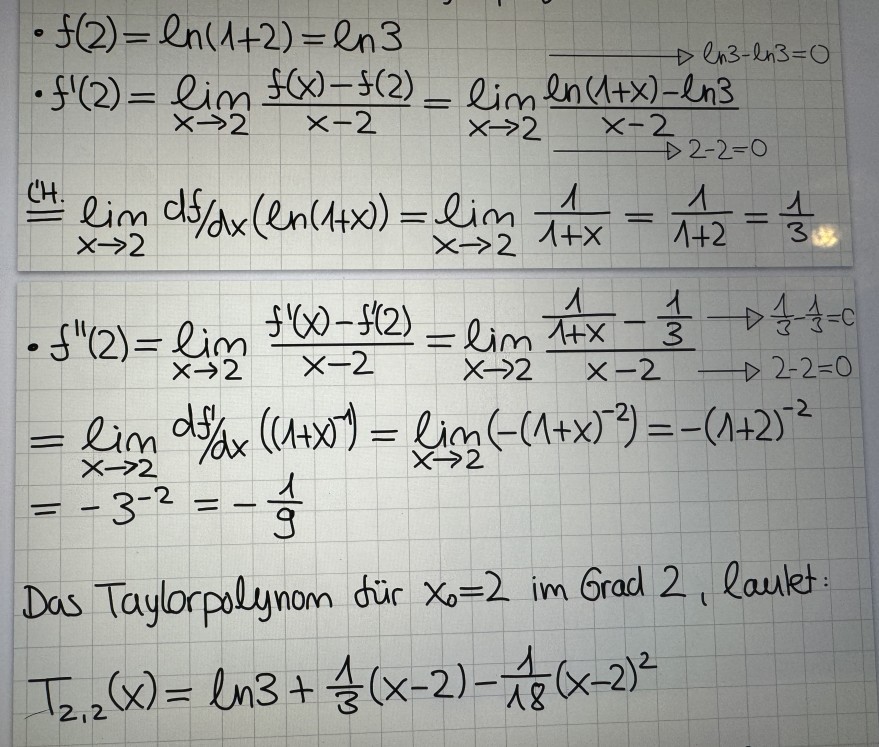 • f(2) = ln(1+2) = ln3
→ ln3-ln3=0
• f'(2) = lim x→2 (f(x)-f(2))/(x-2) = lim x→2 (ln(1+x)-ln3)/(x-2)
→ 2-2=0
l'H. = lim x→2 df/dx (ln(1+x)) = lim x→2 1/(1+x) = 1/(1+2) = 1/3
• f''(2) = lim x→2 (f'(x)-f'(2))/(x-2) = lim x→2 (1/(1+x) - 1/3)/(x-2) → 1/3-1/3=0
→ 2-2=0
= lim x→2 df'/dx ((1+x)⁻¹) = lim x→2 (-(1+x)⁻²) = -(1+2)⁻²
= -3⁻² = -1/9
Das Taylorpolynom für x₀=2 im Grad 2, lautet:
T₂,₂(x) = ln3 + 1/3(x-2) - 1/18(x-2)²